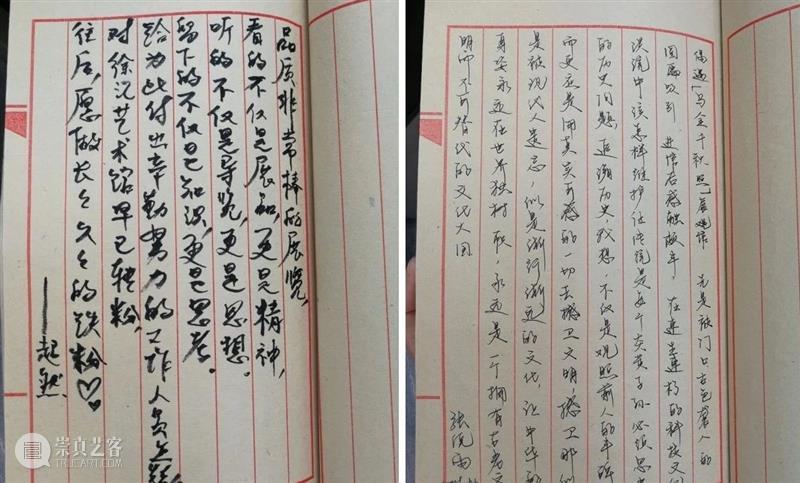 品质非常棒的展览，
看的不仅是展品，更是精神，
听的不仅是导览，更是思想。
留下的不仅是知识，更是思考。
给为此付出辛勤努力的工作人员点赞
对徐汇艺术馆早已转粉，
往后，愿做长长久久的铁粉♡♡
——起然
偶遇「马金千秋照」展览馆 先是被门口古色古香的
图画吸引 进馆后感触颇丰，在连生连朽的科技
洪流中该怎样维护住传统是每个炎黄子孙必须思
的历史问题，追溯历史，我想，不仅是观照前人的丰碑
而更应是用真实可感的一切去撼卫文明，撼卫那
是被现代人遗忘，似是渐行渐远的文化，让中华
真姿永远在世界独树一帜，永远是一个拥有古老文
明而不可替代的文化大国
张悦
崇真艺客
TRUEART